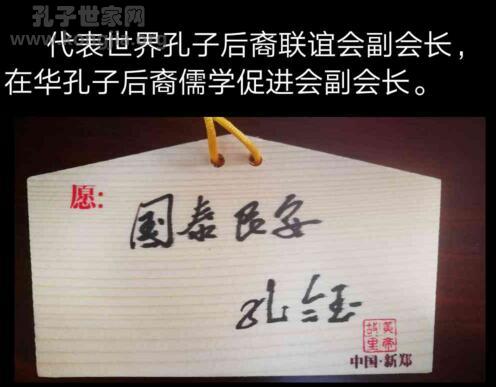 孔子世家网
代表世界孔子后裔联谊会副会长，
在华孔子后裔儒学促进会副会长。
愿：
国泰民安
黄帝
故里
中国·新郑